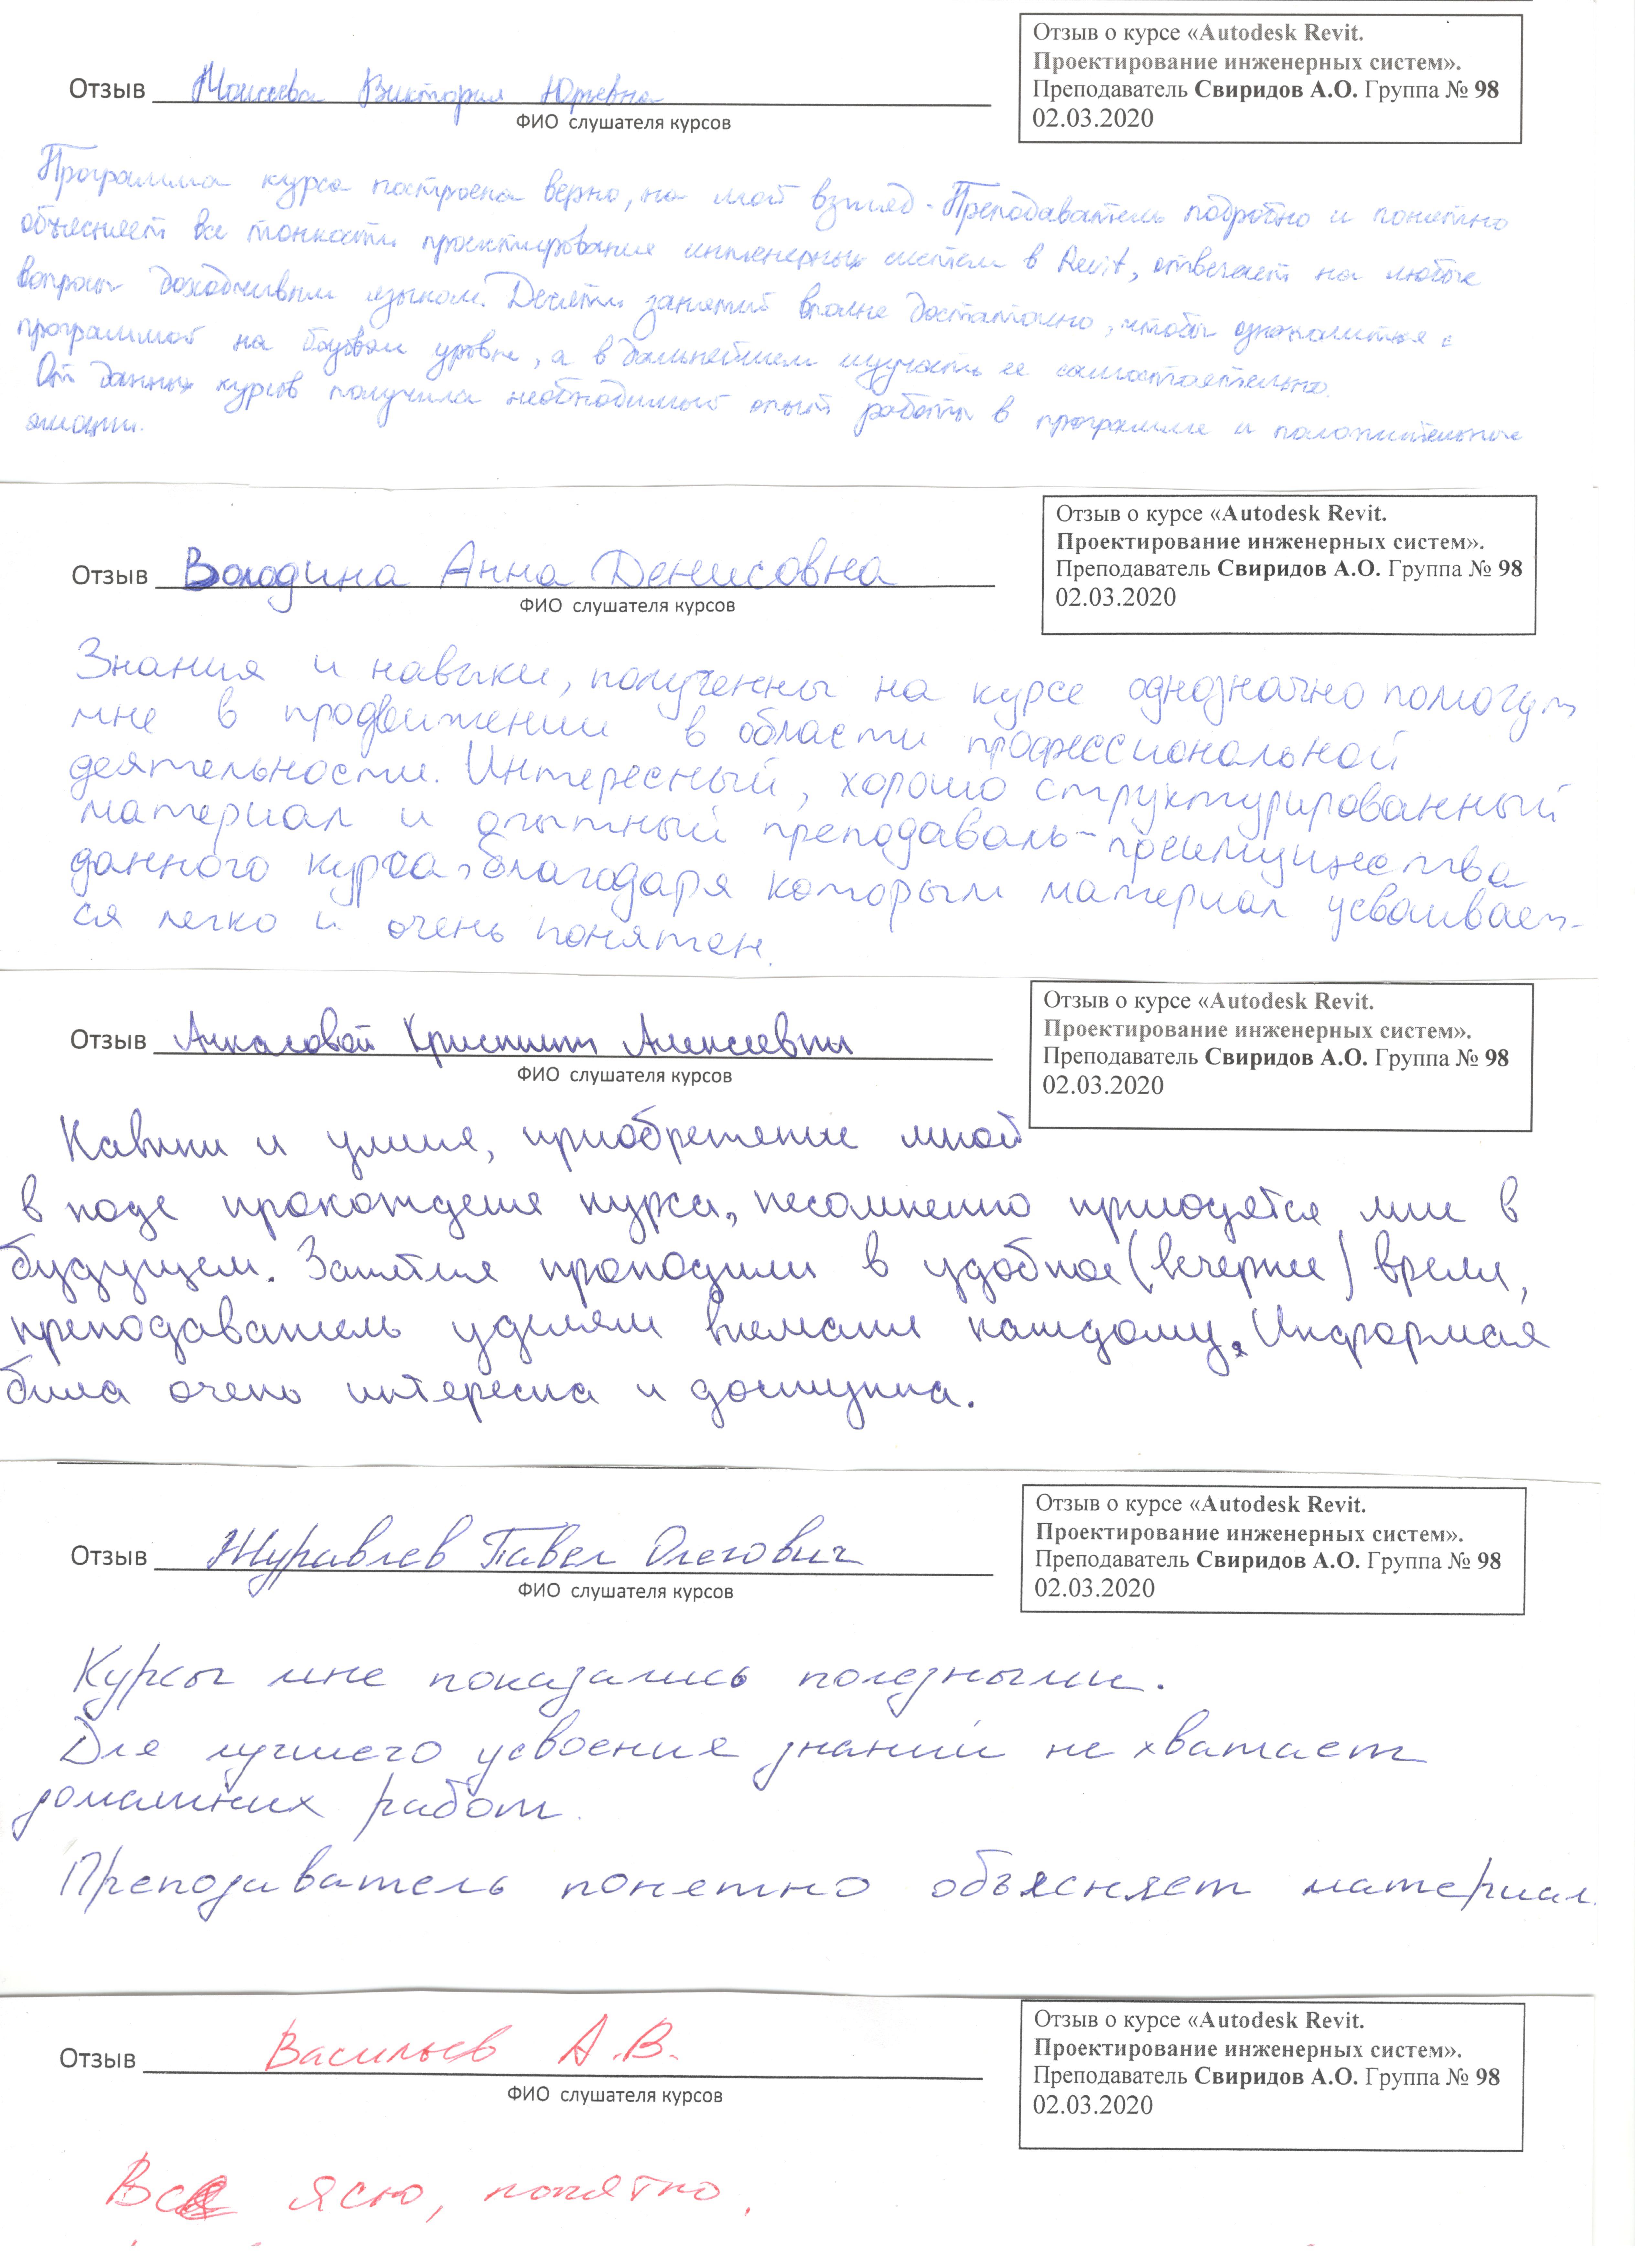 Отзыв о курсе «Autodesk Revit.
Проектирование инженерных систем».
Преподаватель Свиридов А.О. Группа № 98
02.03.2020
Отзыв Моисеева Виктория Юрьевна
ФИО слушателя курсов
Программа курса построена верно, на мой взгляд. Преподаватель подробно и понятно
объясняет все тонкости проектирования инженерных систем в Revit, отвечает на любые
вопросы доходчивым языком. Десяти занятий вполне достаточно, чтобы ознакомиться с
программой на базовом уровне, а в дальнейшем изучать ее самостоятельно.
От данных курсов получила необходимый опыт работы в программе и положительные
эмоции.
Отзыв о курсе «Autodesk Revit.
Проектирование инженерных систем».
Преподаватель Свиридов А.О. Группа № 98
02.03.2020
Отзыв Володина Анна Денисовна
ФИО слушателя курсов
Знания и навыки, полученны на курсе однозначно помогут
мне в продвижении в области профессиональной
деятельности. Интересный, хорошо структурированный
материал и опытный преподаваль - преимущества
данного курса, благодаря которым материал усваивает-
ся легко и очень понятен.
Отзыв о курсе «Autodesk Revit.
Проектирование инженерных систем».
Преподаватель Свиридов А.О. Группа № 98
02.03.2020
Отзыв Кристины Алексеевны
ФИО слушателя курсов
Навыки и умния, приобретение мной
в ходе прохождения курса, несомненно пригодятся мне в
будущем. Занятия проходили в удобное (вечернее) время,
преподаватель уделял внимание каждому. Информация
была очень интересна и доступна.
Отзыв о курсе «Autodesk Revit.
Проектирование инженерных систем».
Преподаватель Свиридов А.О. Группа № 98
02.03.2020
Отзыв Журавлев Павел Олегович
ФИО слушателя курсов
Курсы мне показались полезными.
Для лучшего усвоения знаний не хватает
домашних работ.
Преподаватель понятно объясняет материал.
Отзыв о курсе «Autodesk Revit.
Проектирование инженерных систем».
Преподаватель Свиридов А.О. Группа № 98
02.03.2020
Отзыв Васильев А.В.
ФИО слушателя курсов
Все ясно, понятно.